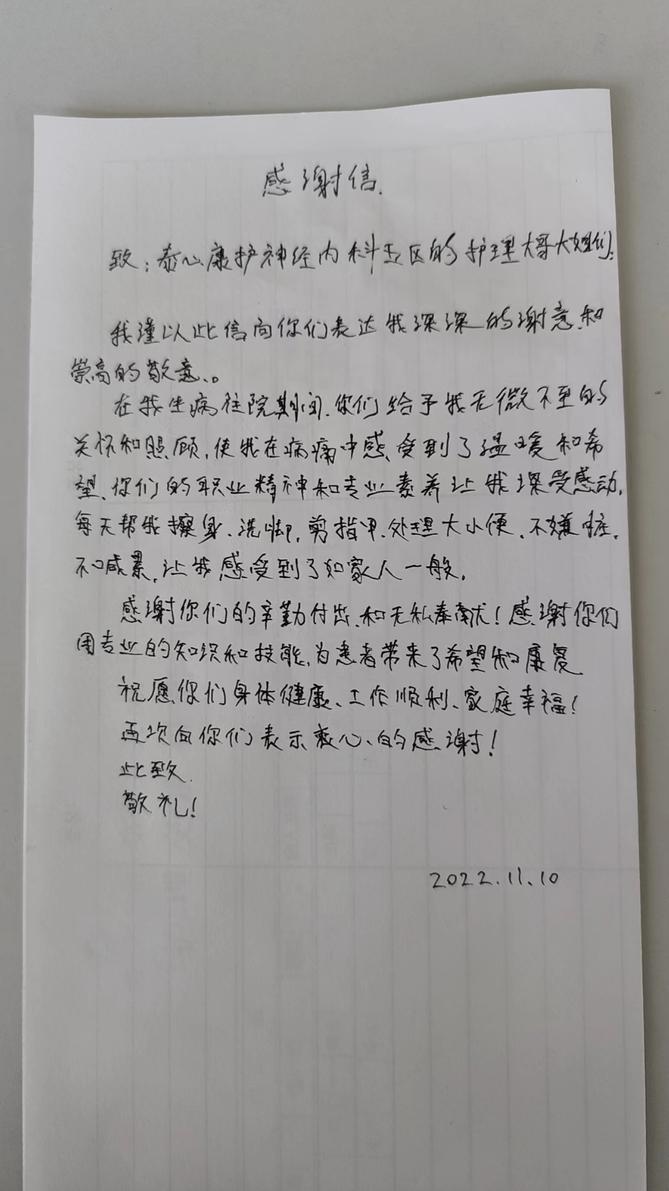 感谢信.
致:泰心康护神经内科五区的护理大哥大姐们:
我谨以此信向你们表达我深深的谢意和
崇高的敬意。
在我生病住院期间.你们给予我无微不至的
关怀和照顾,使我在病痛中感受到了温暖和希
望.你们的职业精神和专业素养让我深受感动.
每天帮我擦身、洗脚,剪指甲.处理大小便.不嫌脏.
不喊累.让我感受到了如家人一般.
感谢你们的辛勤付出.和无私奉献!感谢你们
用专业的知识和技能,为患者带来了希望和康复
祝愿你们身体健康、工作顺利、家庭幸福!
再次向你们表示衷心的感谢!
此致.
敬礼!
2022.11.10